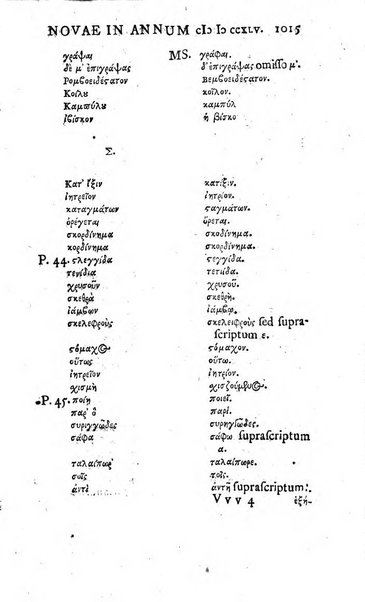 NOVAE IN ANNUM cIↃ IↃ ccXLV. 1015
γράψαι MS. γράφαι.
δέ μ' ἐπιγράψας δ' ἐπιγράψας omisso μ'.
Ρομβοειδέςατον Βεμβοειδέςατον.
Κοίλυ κοῖλον.
Καμπύλυ καμπύλ
ἰβίσκον ἡ βίσκο
Σ.
Κατ' ἴξιν κατιξιν.
ἰητρεῖον ἰητρίον.
καταγμάτων ςαγμάτων.
ὀρέγεται ὅρεται.
σκορδίνημα σκοδίνημα.
κορδίνημα σκορδίνημα.
P. 44. ςλεγγίδα ςεγγίδα.
τενίδια τετιίδα.
χρυσοῦν χρυσοῦ.
σκευρὰ σκεύρη.
ἰάμβων ἰάμβῳ.
σκελεφροὺς σκελειφροὺς sed supra-
scriptum ε.
ςόμαχος ςόμαχον.
οὕτως οὕτω.
ἰητρεῖον ἰητρίον.
σχισμὴ σχιζούμβυος.
P. 45. ποίη ποιεῖ.
παρ' ὃ παρί.
συριγγῶδες συρηγγῶδες.
σάφα σάφω suprascriptum
α.
ταλαίπωρ' ταλαίπωρε.
σοῖς ποῖς.
ἀντὲ ἀντῆ suprascriptum.
V v v 4 ἐξή-